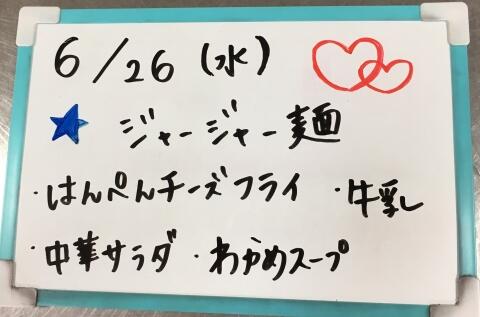 6/26(水)
ジャージャー麺
・はんぺんチーズフライ ・牛乳
・中華サラダ ・わかめスープ